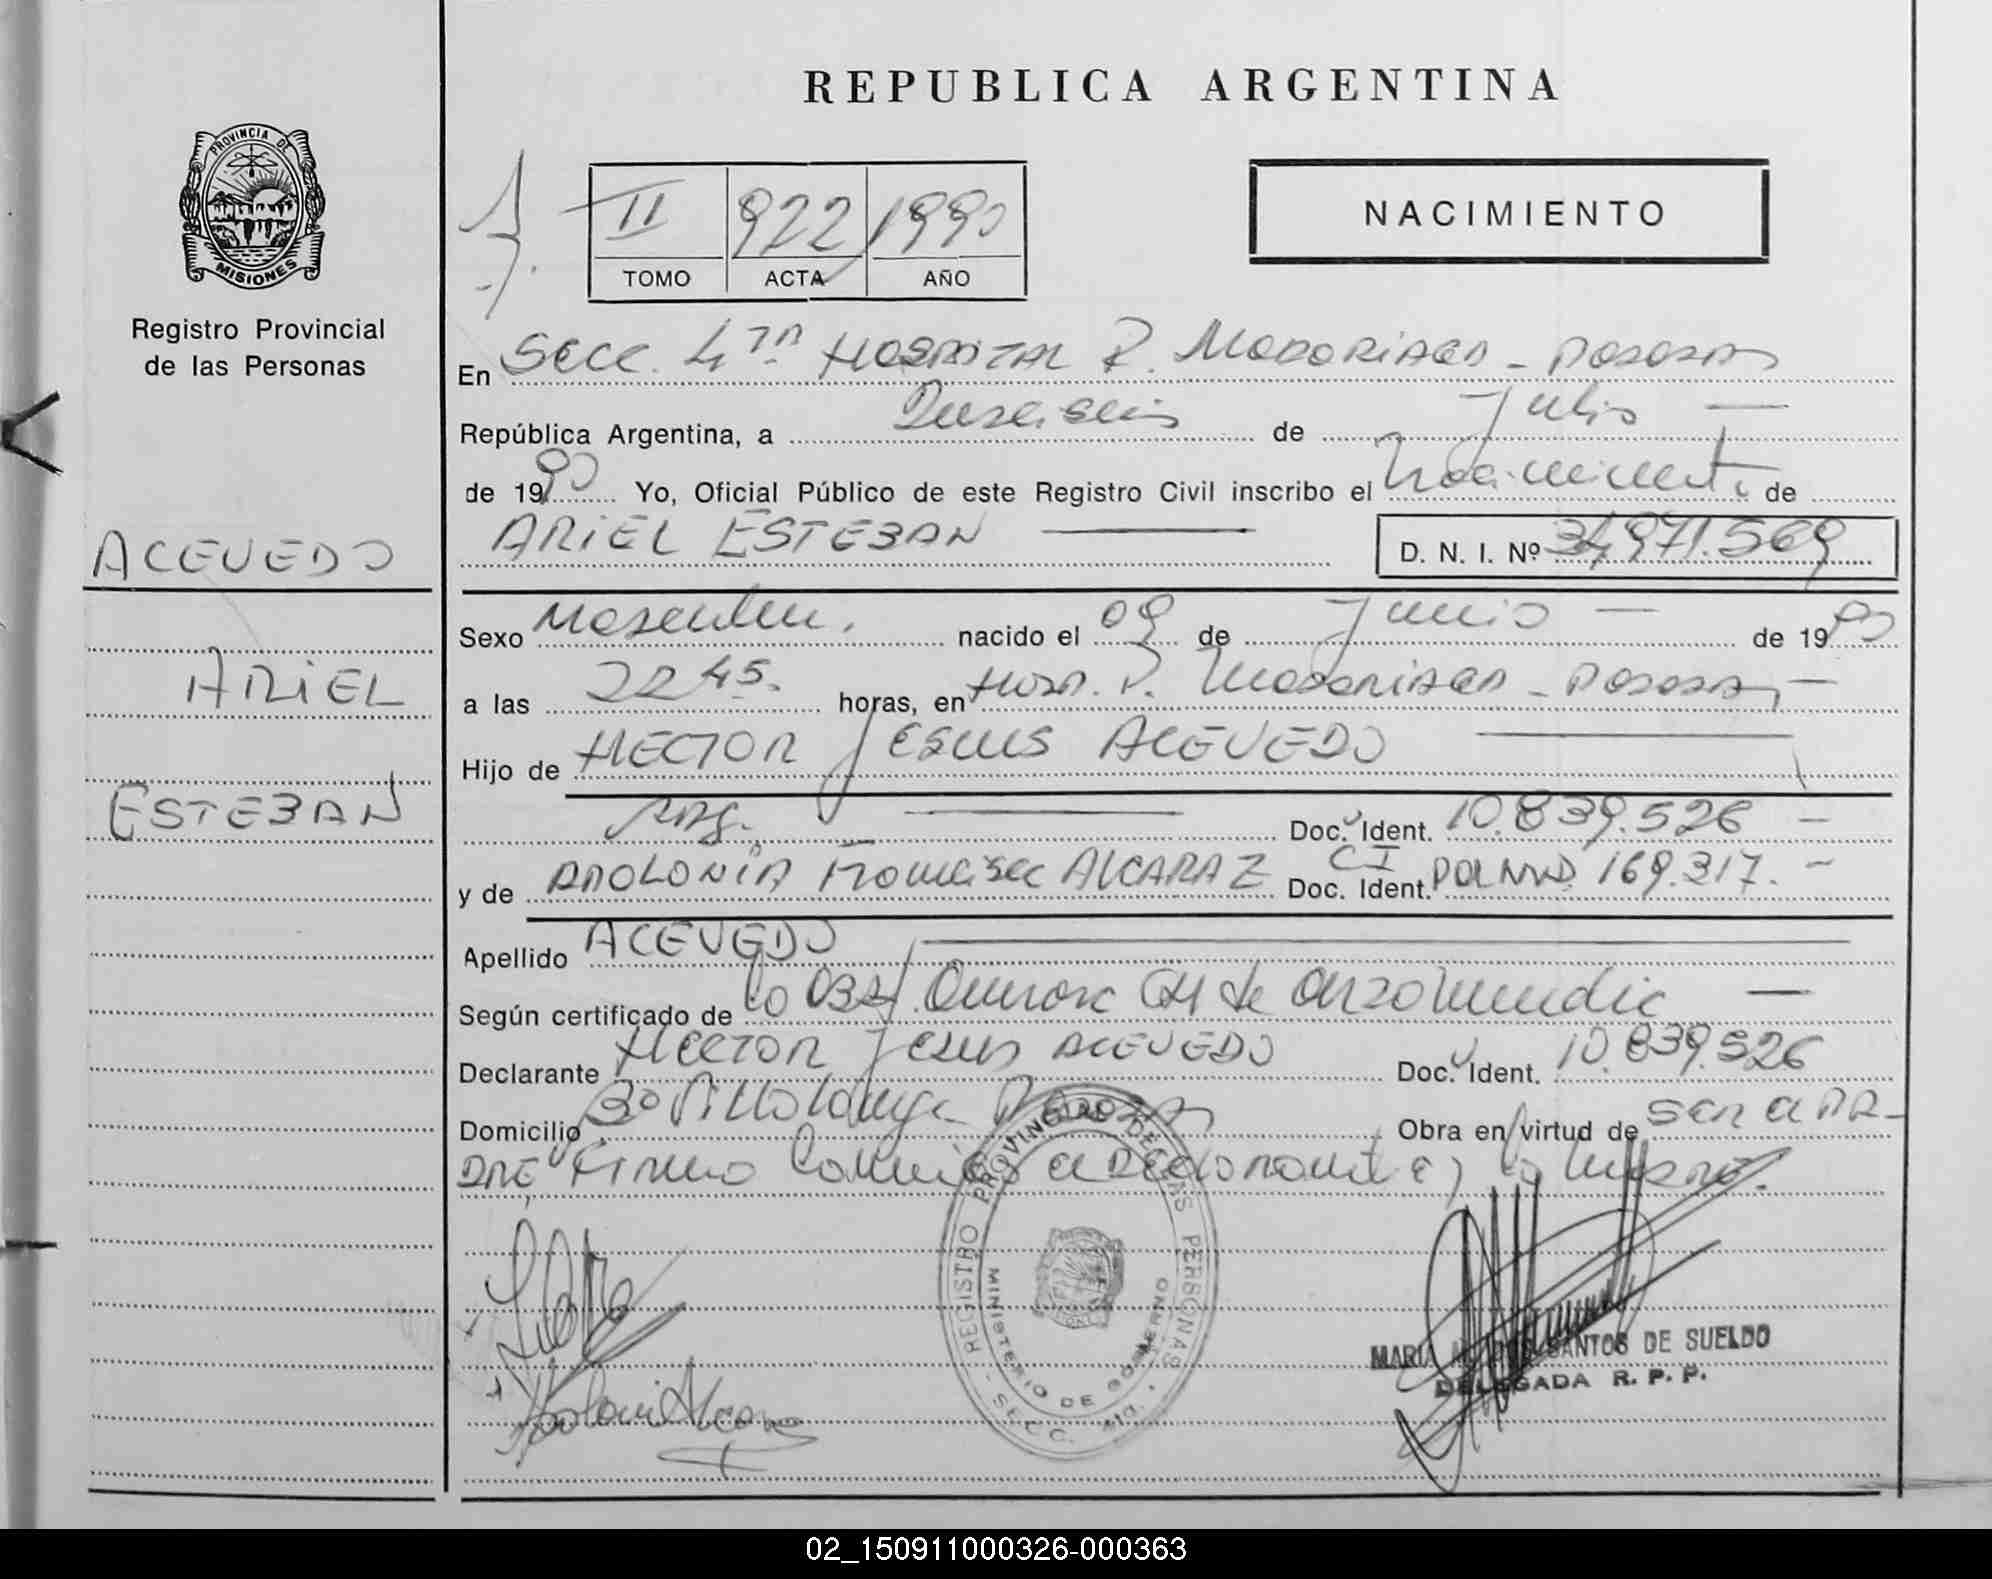 REPUBLICA ARGENTINA
PROVINCIA DE
MISIONES
Registro Provincial
de las Personas
II 922 1990
TOMO ACTA AÑO
NACIMIENTO
En Secc. 4ta Hospital R. Madariaga - Posadas
República Argentina, a Dieciseis de Julio
de 1990 Yo, Oficial Público de este Registro Civil inscribo el Nacimiento de
ARIEL ESTEBAN D. N. I. Nº 34.971.569
ACEVEDO
ARIEL
ESTEBAN
Sexo Masculino. nacido el 09 de Junio de 1990
a las 22 45. horas, en Hosp. R. Madariaga - Posadas
Hijo de HECTOR JESUS ACEVEDO
Arg. Doc. Ident. 10.839.526
y de APOLONIA Francisca ALCARAZ Doc. Ident. CI POL MNS. 169.317.
Apellido ACEVEDO
Según certificado de la Obst. de
Declarante HECTOR Jesus ACEVEDO Doc. Ident. 10.839.526
Domicilio Posadas Obra en virtud de ser el PA-
DRE, Firma
REGISTRO PROVINCIAL DE LAS PERSONAS
MINISTERIO DE GOBIERNO
SECC. 4ta.
Apolonia Alcaraz
MARIA SANTOS DE SUELDO
DELEGADA R. P. P.
02_150911000326-000363